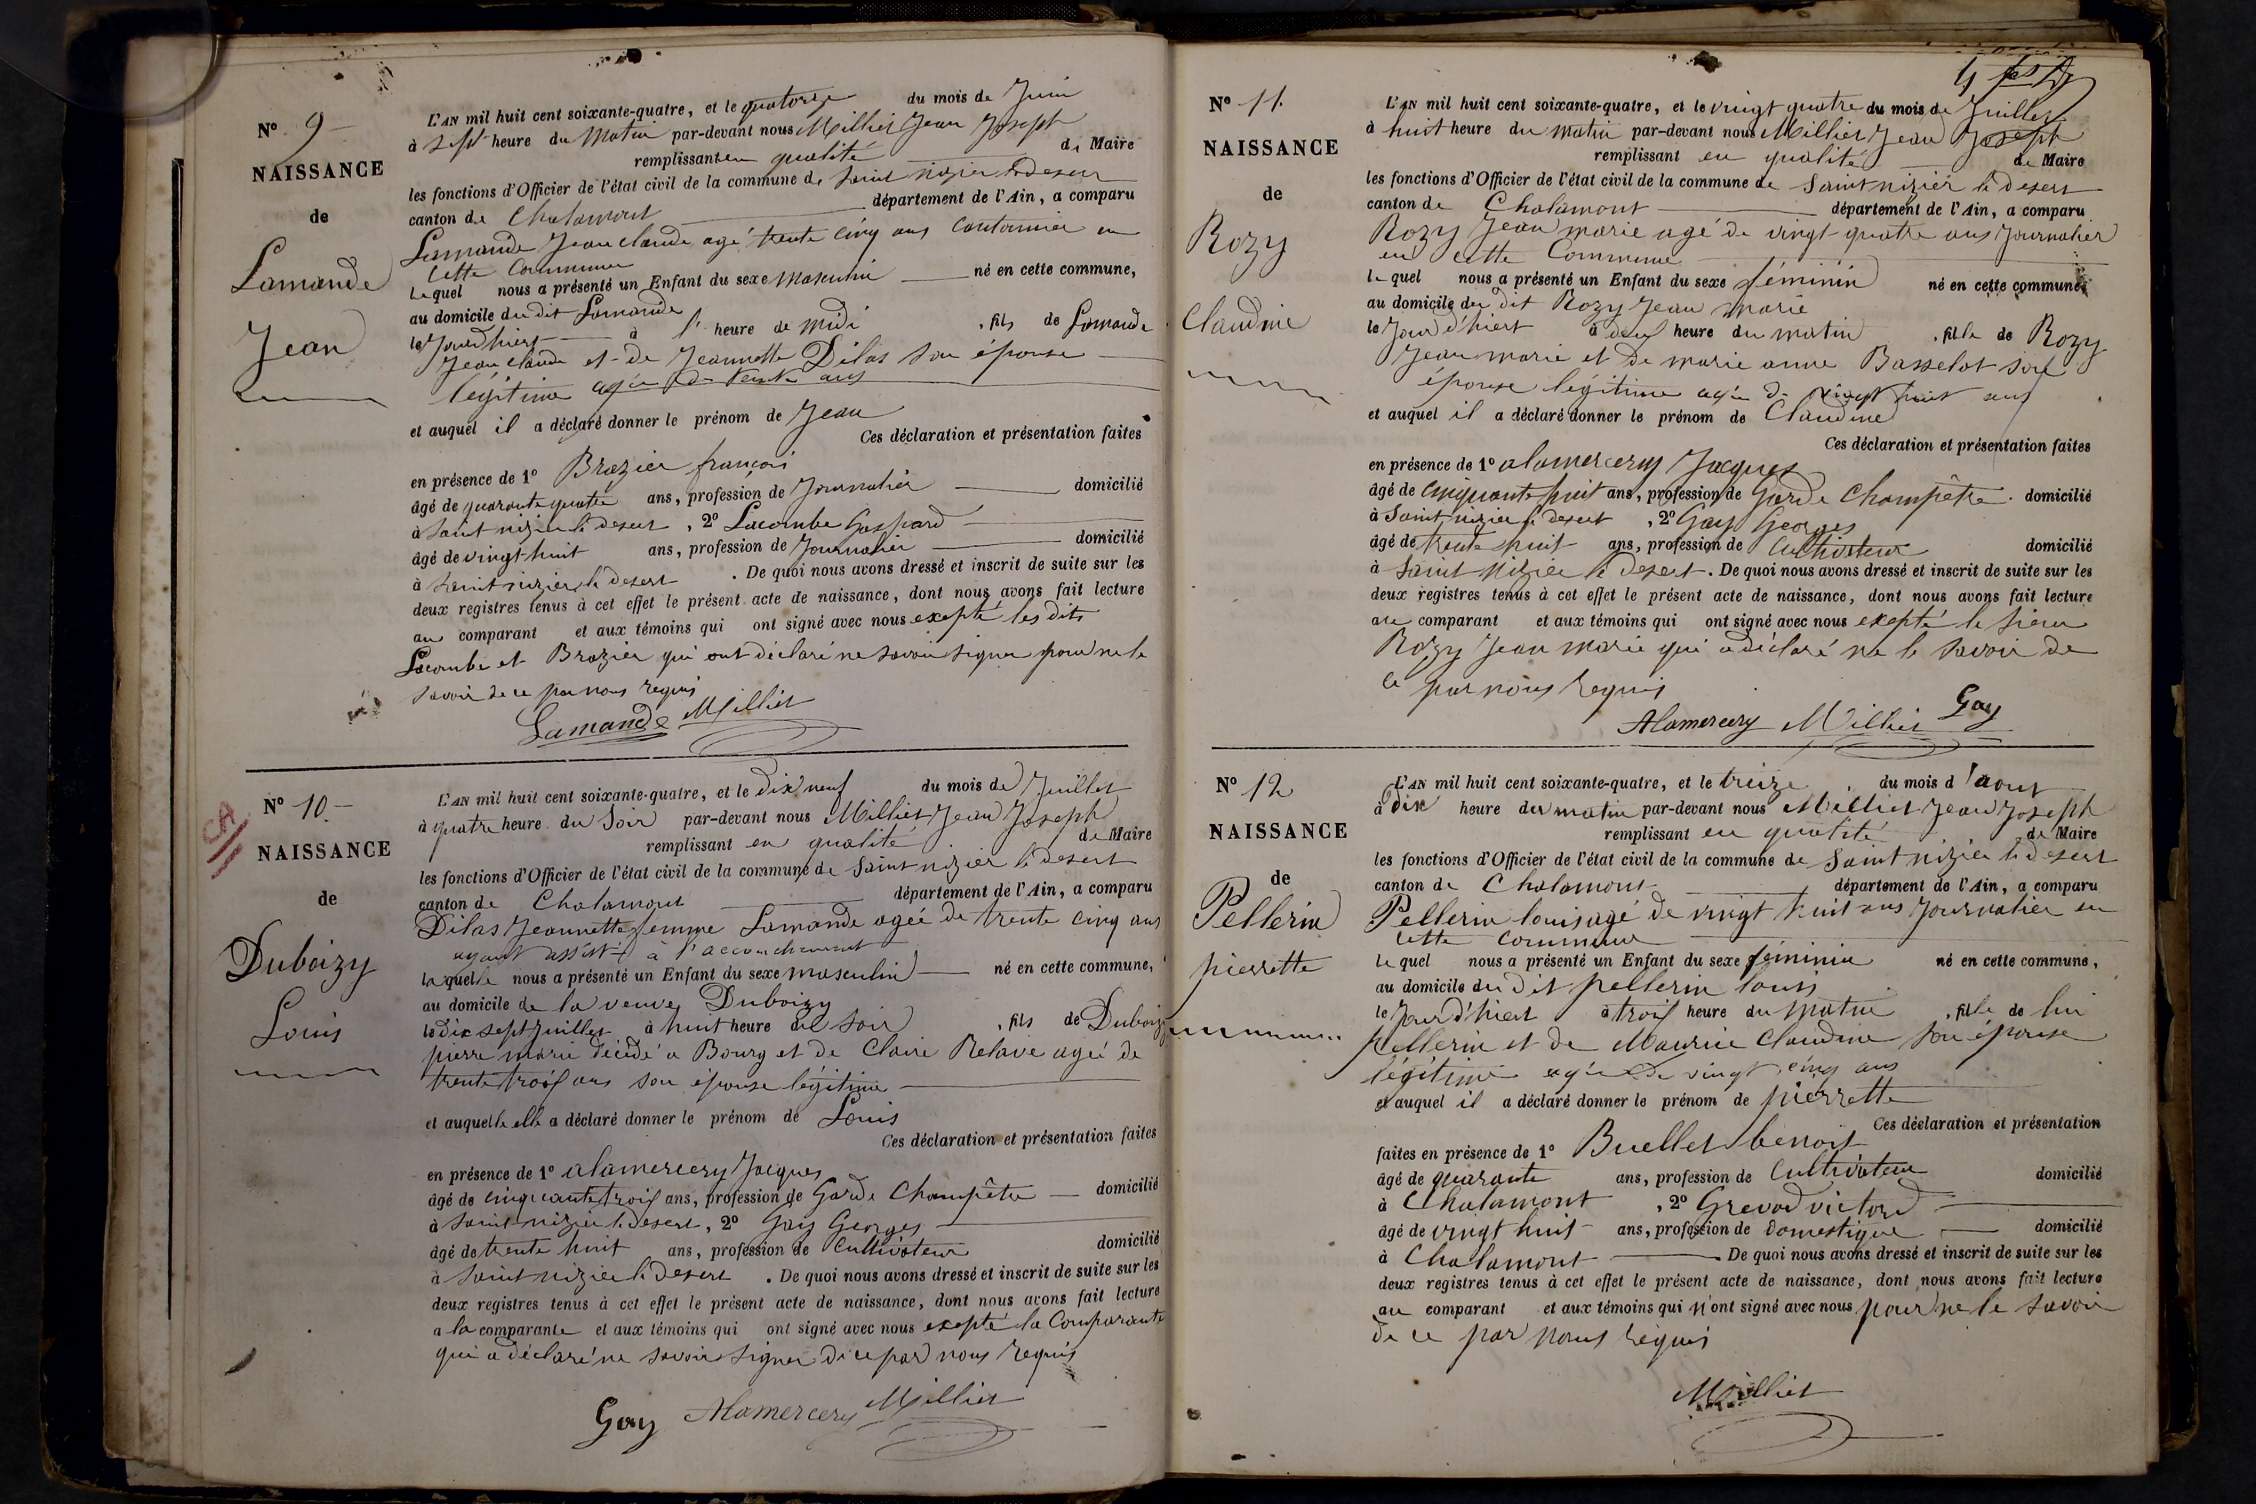 N° 9
NAISSANCE
de
Lamande
Jean
L'AN mil huit cent soixante-quatre, et le quatorze du mois de Juin
à sept heure du matin par-devant nous Milliet Jean Joseph
remplissant en qualité de Maire
les fonctions d'Officier de l'état civil de la commune de Saint nizier le desert
canton de Chalamont département de l'Ain, a comparu
Lamande Jean claude agé trente cinq ans cantonnier en
cette Commune
lequel nous a présenté un Enfant du sexe masculin né en cette commune,
au domicile du dit Lamande
le Jourdhiert à l' heure de midi , fils de Lamande
Jean claude et de Jeannette Dilas son épouse
légitime agée de trente ans
et auquel il a déclaré donner le prénom de Jean
Ces déclaration et présentation faites
en présence de 1° Brazier françois
âgé de quarante quatre ans, profession de Journalier domicilié
à Saint nizier le desert , 2° Lacombe Gaspard
âgé de vingt huit ans, profession de Journalier domicilié
à Saint nizier le desert . De quoi nous avons dressé et inscrit de suite sur les
deux registres tenus à cet effet le présent acte de naissance, dont nous avons fait lecture
au comparant et aux témoins qui ont signé avec nous exepté les dits
Lacombe et Brazier qui ont déclaré ne savoir signer pour ne le
savoir de ce par nous requis
Lamande Milliet
N° 10
NAISSANCE
de
Duboizy
Louis
L'AN mil huit cent soixante-quatre, et le dix neuf du mois de Juillet
à quatre heure du Soir par-devant nous Milliet Jean Joseph
remplissant en qualité de Maire
les fonctions d'Officier de l'état civil de la commune de Saint nizier le desert
canton de Chalamont département de l'Ain, a comparu
Dilas Jeannette femme Lamande agée de trente cinq ans
ayant assisté à l'accouchement
laquelle nous a présenté un Enfant du sexe masculin né en cette commune,
au domicile de la veuve Duboizy
le dix sept Juillet à huit heure du soir , fils de Duboizy
pierre marie décédé a Bourg et de Claire Relave agée de
trente trois ans son épouse légitime
et auquelle elle a déclaré donner le prénom de Louis
Ces déclaration et présentation faites
en présence de 1° alamercery Jacques
âgé de cinquante trois ans, profession de Garde Champêtre domicilié
à Saint nizier le desert, 2° Gay Georges
âgé de trente huit ans, profession de Cultivateur domicilié
à Saint nizier le desert . De quoi nous avons dressé et inscrit de suite sur les
deux registres tenus à cet effet le présent acte de naissance, dont nous avons fait lecture
a la comparante et aux témoins qui ont signé avec nous exepté la Comparante
qui a déclaré ne savoir signer de ce par nous requis
Gay Alamercery Milliet
N° 11.
NAISSANCE
de
Rozy
Claudine
L'AN mil huit cent soixante-quatre, et le vingt quatre du mois de Juillet
à huit heure du matin par-devant nous Milliet Jean Joseph
remplissant en qualité de Maire
les fonctions d'Officier de l'état civil de la commune de Saint nizier le desert
canton de Chalamont département de l'Ain, a comparu
Rozy Jean marie agé de vingt quatre ans Journalier
en cette Commune
lequel nous a présenté un Enfant du sexe féminin né en cette commune,
au domicile du dit Rozy Jean Marie
le Jour d'hiert à deux heure du matin , fille de Rozy
Jean marie et de marie anne Basselot son
épouse légitime agée de vingt huit ans
et auquel il a déclaré donner le prénom de Claudine
Ces déclaration et présentation faites
en présence de 1° alamercery Jacques
âgé de cinquante huit ans, profession de Garde Champêtre domicilié
à Saint nizier le desert , 2° Gay Georges
âgé de trente huit ans, profession de Cultivateur domicilié
à Saint Nizier le Desert. De quoi nous avons dressé et inscrit de suite sur les
deux registres tenus à cet effet le présent acte de naissance, dont nous avons fait lecture
au comparant et aux témoins qui ont signé avec nous exepté le sieur
Rozy Jean Marie qui a déclaré ne le savoir de
ce par nous requis
Alamercery Milliet Gay
N° 12
NAISSANCE
de
Pellerin
pierrette
L'AN mil huit cent soixante-quatre, et le treize du mois d'aout
à dix heure du matin par-devant nous Milliet Jean Joseph
remplissant en qualité de Maire
les fonctions d'Officier de l'état civil de la commune de Saint nizier le desert
canton de Chalamont département de l'Ain, a comparu
Pellerin louis agé de vingt huit ans Journalier en
cette commune
lequel nous a présenté un Enfant du sexe féminin né en cette commune,
au domicile du dit pellerin louis
le Jour d'hiert à trois heure du matin , fille de lui
Pellerin et de Maurice Claudine son épouse
légitime agée de vingt cinq ans
et auquel il a déclaré donner le prénom de pierrette
Ces déclaration et présentation
faites en présence de 1° Buellet benoit
âgé de quarante ans, profession de Cultivateur domicilié
à Chalamont , 2° Grevod victord
âgé de vingt huit ans, profession de domestique domicilié
à Chalamont De quoi nous avons dressé et inscrit de suite sur les
deux registres tenus à cet effet le présent acte de naissance, dont nous avons fait lecture
au comparant et aux témoins qui n'ont signé avec nous pour ne le savoir
de ce par nous requis
Milliet